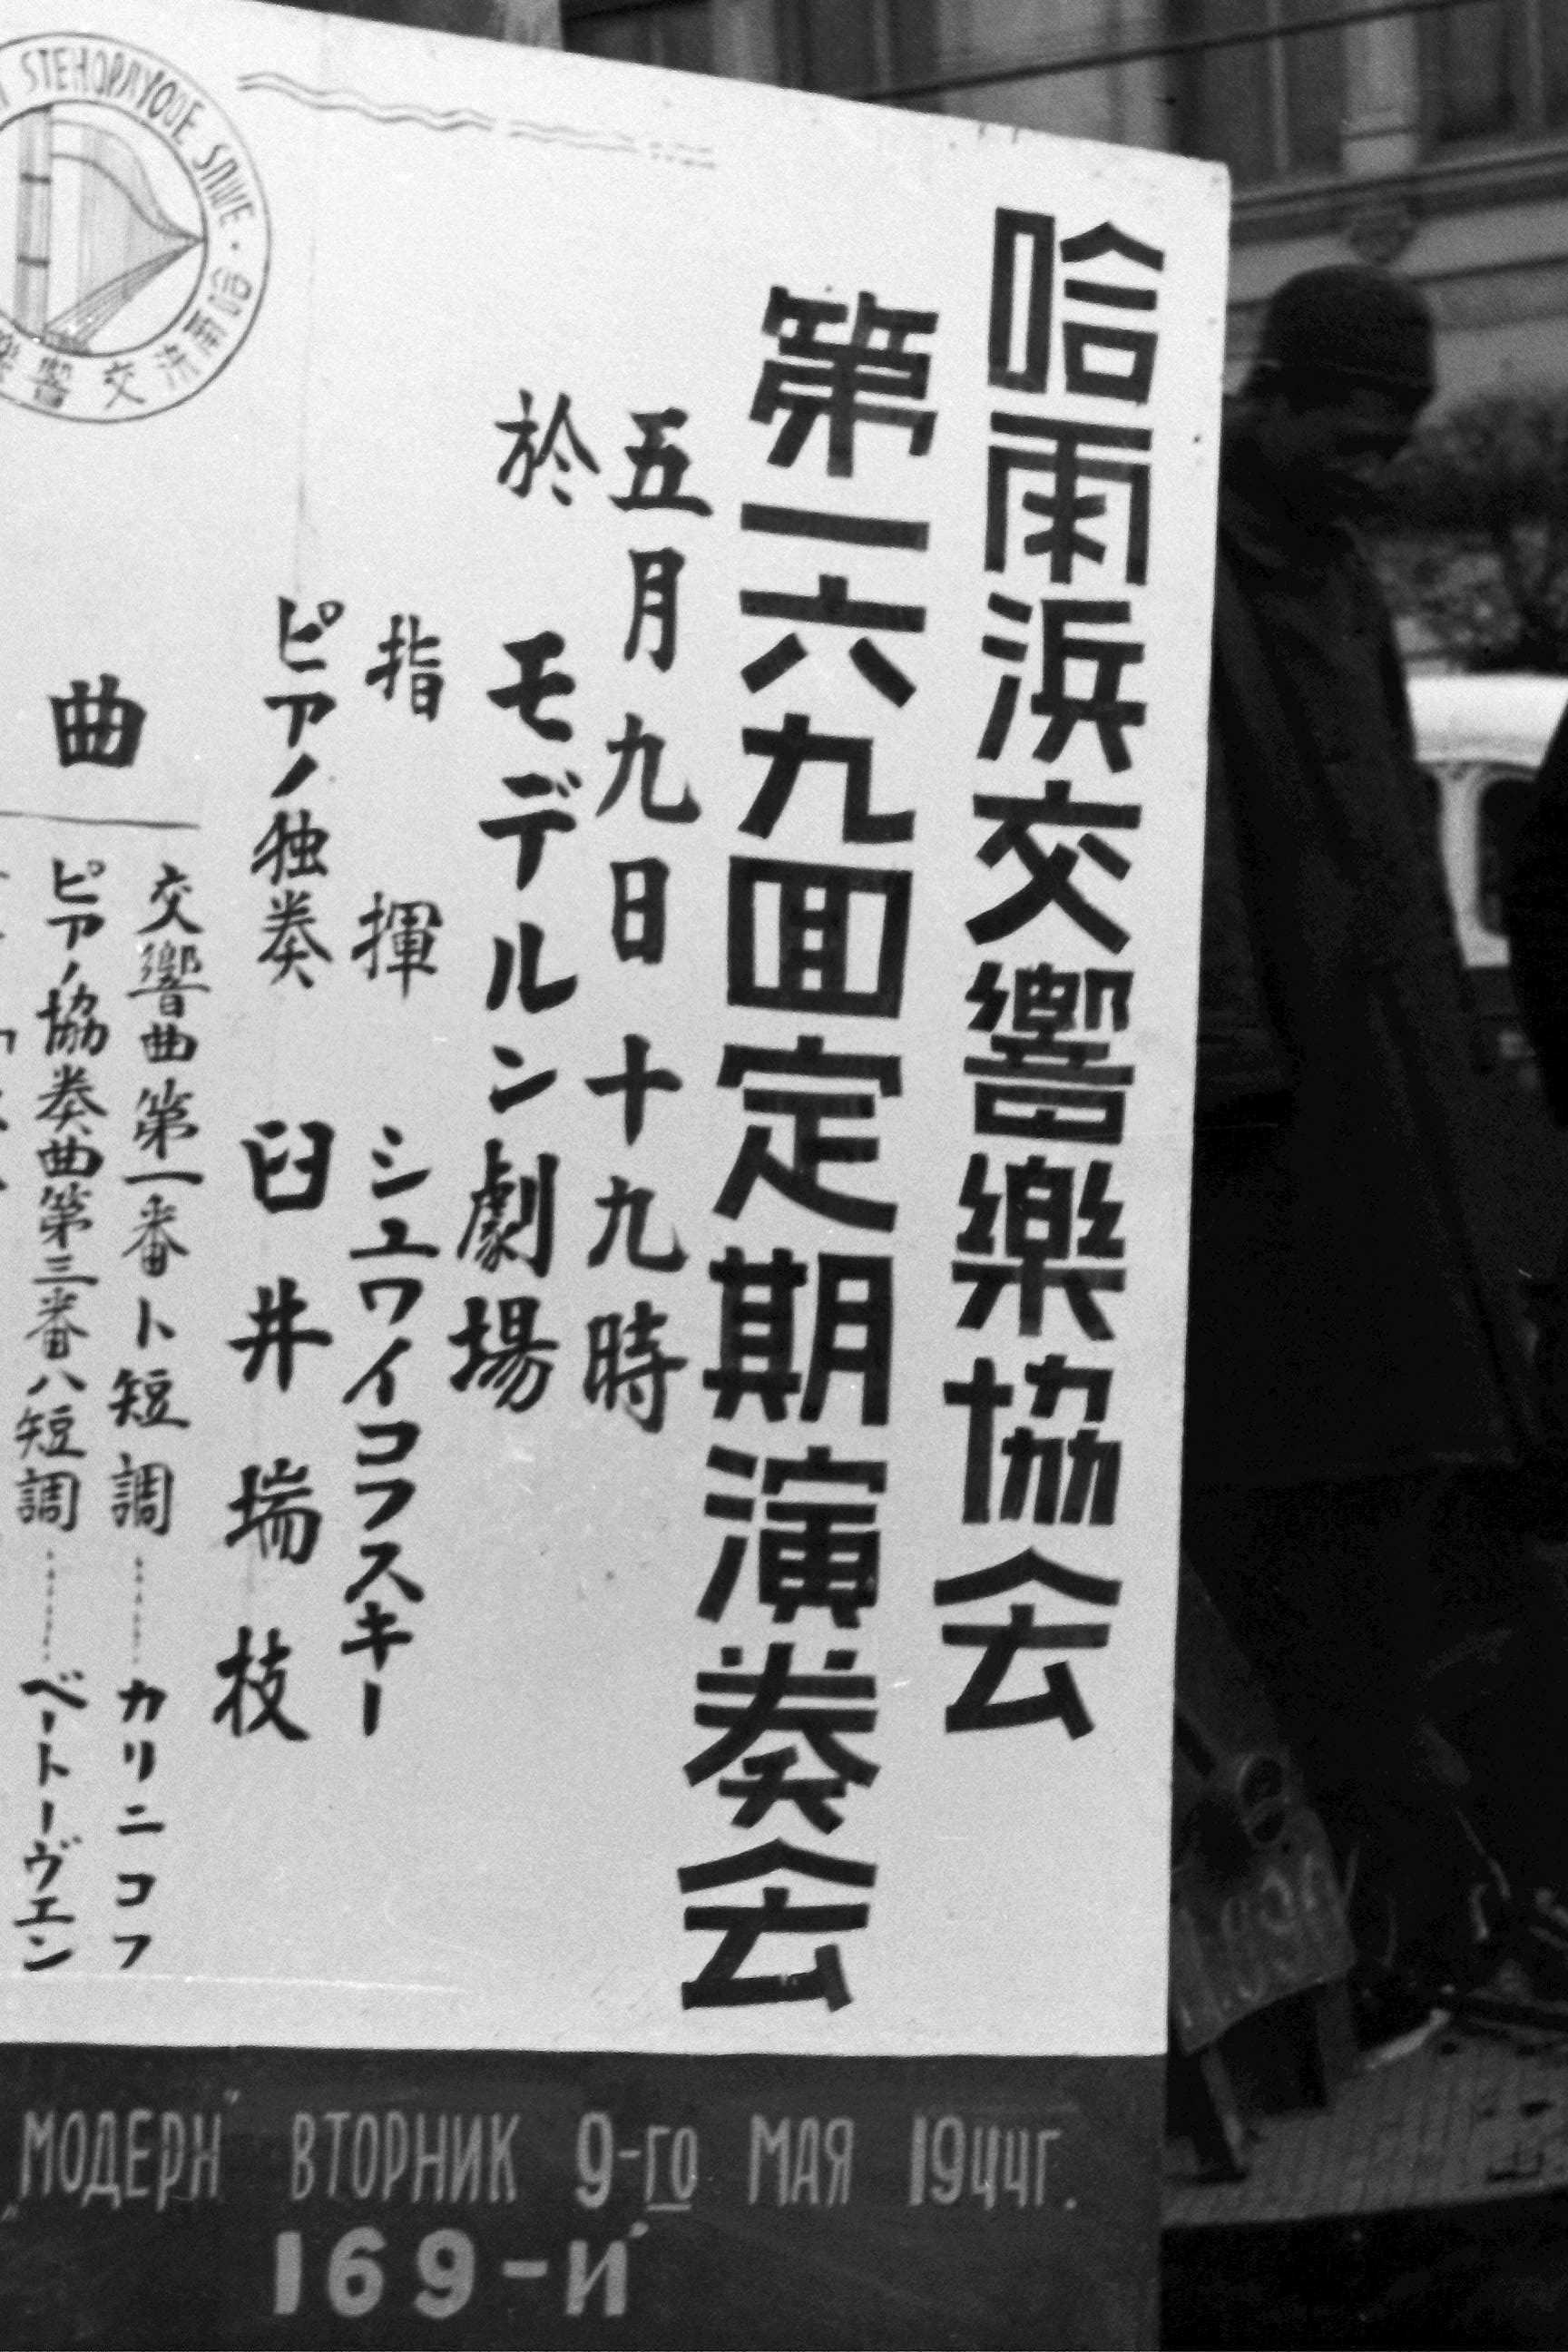 哈雨浜交響樂協会
第一六九回定期演奏会
五月九日十九時
於 モデルン劇場
指揮 シュワイコフスキー
ピアノ独奏 臼井瑞枝
曲
交響曲第一番ト短調……カリニコフ
ピアノ協奏曲第三番ハ短調……ベートーヴェン
哈爾浜交響樂
„МОДЕРН" ВТОРНИК 9-го МАЯ 1944г.
169-Й